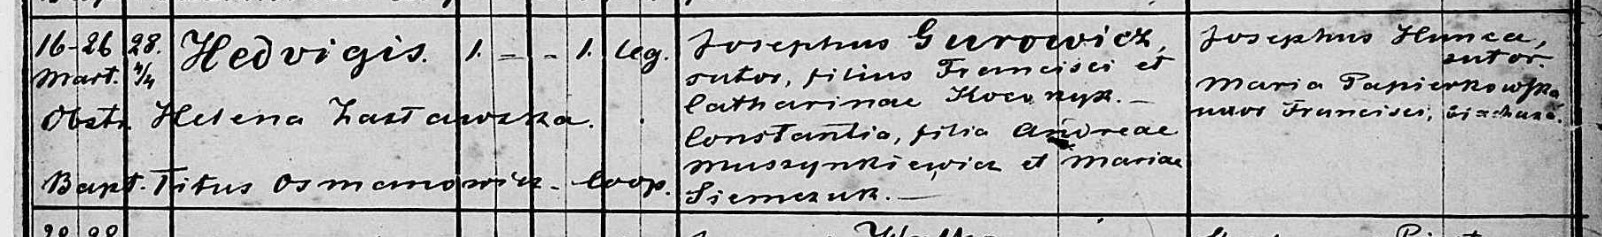 16-26 28. Hedvigis. 1. - - 1. leg.
Mart. 4/4
Obstr. Helena Zasławska.
Bapt. Titus Osmanowicz - Coop.
Josephus Gurowicz,
sutor, filius Francisci et
Catharinae
Constantia, filia Andreae
Muszynkiewicz et Mariae
Siemczuk. -
Josephus Hunca,
sutor.
Maria Papierkowska
uxor Francisci,
28 28